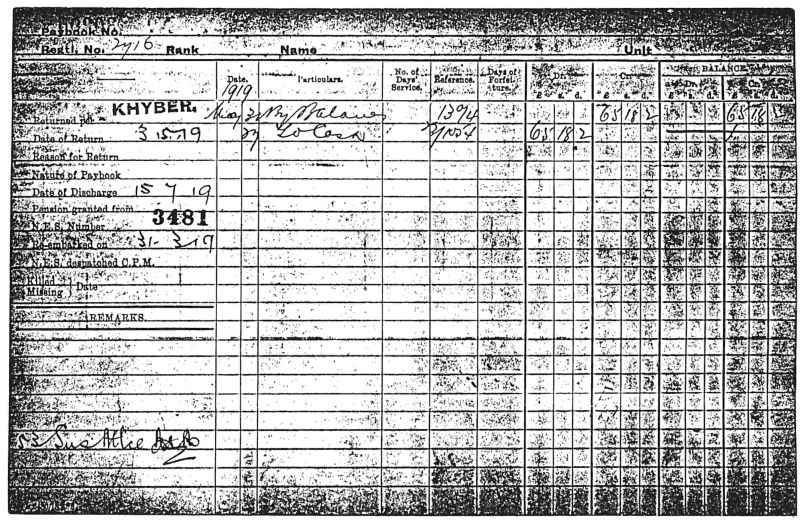 Paybook No.
Regtl. No. 2716 Rank Name Unit
Date. Particulars. No. of Days' Service. Reference. Days of Forfeiture. Dr. Cr. BALANCE
£ s. d. £ s. d. Dr. Cr.
1919
Returned per KHYBER. May By Balance 1394 65 18 2 65 18 2
Date of Return 3 5 19 27 To Cash 65 18 2
Reason for Return
Nature of Paybook
Date of Discharge 15 7 19
Pension granted from
N.E.S. Number 3481
Re-embarked on 31 3 19
N.E.S. despatched C.P.M.
Killed
Missing } Date
REMARKS.
53